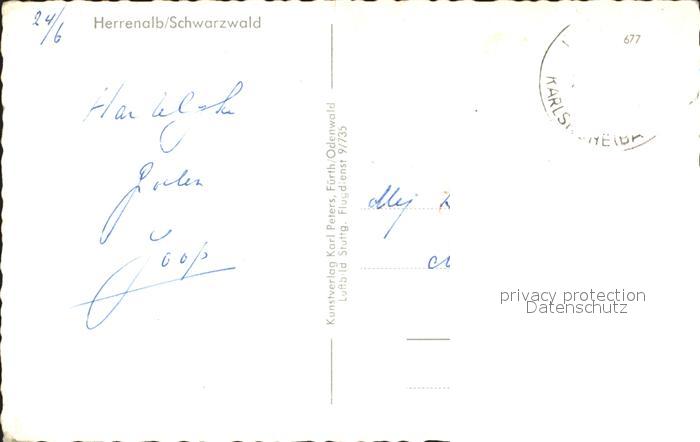 24/6
Herrenalb/Schwarzwald
677
Hartelijke
Joop
Kunstverlag Karl Peters, Fürth/Odenwald
Luftbild Stuttg. Flugdienst 9/735
Mej
privacy protection
Datenschutz